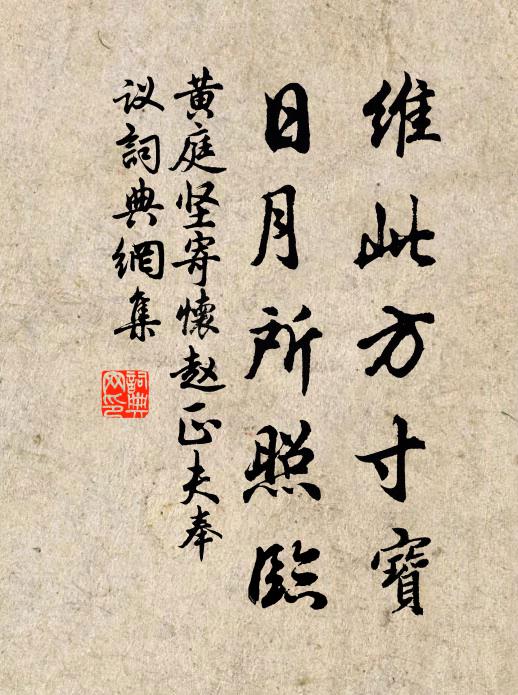 維此方寸寶
日月所照臨
黄庭坚寄懷赵正夫奉
议詞典網集
詞典
网印